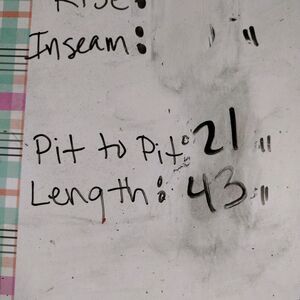 Rise:
Inseam: "
Pit to Pit: 21"
Length: 43"